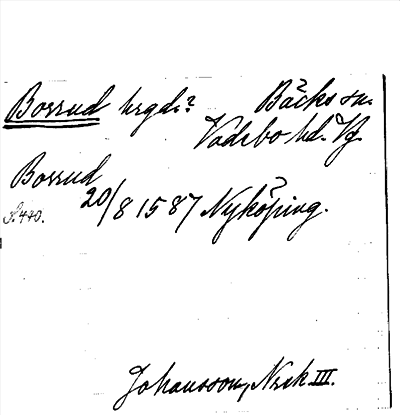 Borrud hrgd.? Bäcks sn.
Vadsbo hd. Vg.
Borrud
20/8 1587 Nyköping.
S. 440.
Johansson, Nrck III.